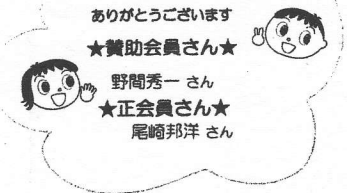 ありがとうございます
★賛助会員さん★
野間秀一 さん
★正会員さん★
尾崎邦洋 さん